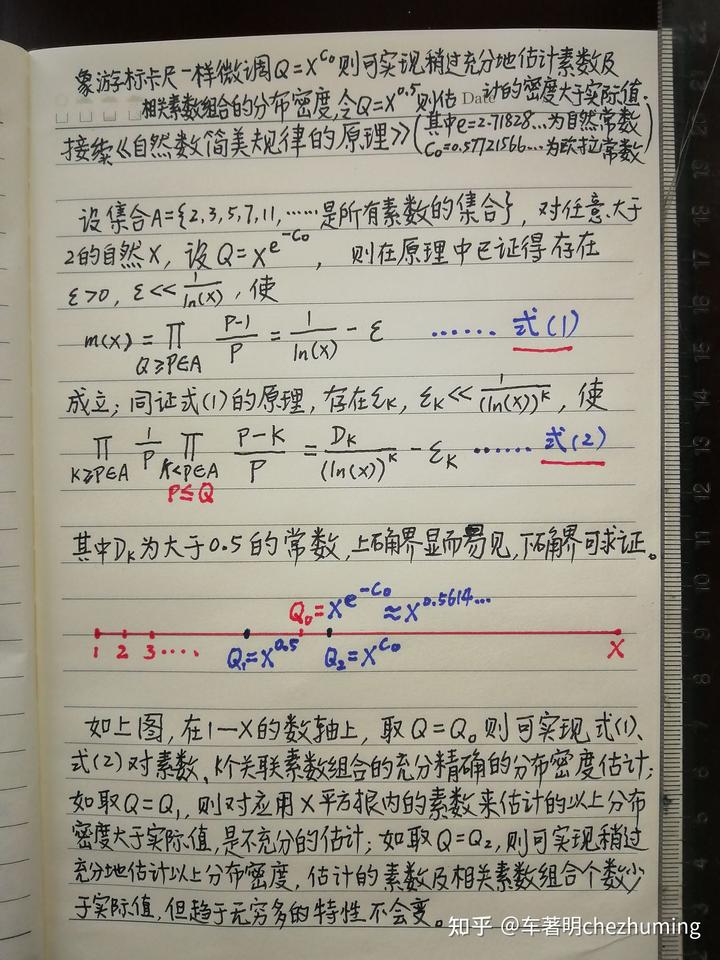 象游标卡尺一样微调Q=X^C₀则可实现稍过充分地估计素数及
相关素数组合的分布密度,令Q=X^0.5则估计的密度大于实际值.
Date
接续《自然数简美规律的原理》(其中e=2.71828…为自然常数
C₀=0.57721566…为欧拉常数)
设集合A={2,3,5,7,11,……是所有素数的集合},对任意大于
2的自然X,设Q=X^e^-C₀,则在原理中已证得存在
ε>0,ε<<1/ln(X),使
m(X)=∏_{Q≥P∈A} (P-1)/P = 1/ln(X) - ε ……式(1)
成立;同证式(1)的原理,存在ε_K,ε_K<<1/(ln(X))^K,使
∏_{K≥P∈A} 1/P ∏_{K<P∈A P≤Q} (P-K)/P = D_K/(ln(X))^K - ε_K ……式(2)
其中D_K为大于0.5的常数,上确界显而易见,下确界可求证。
Q₀=X^e^-C₀≈X^0.5614…
1 2 3 …. Q₁=X^0.5 Q₂=X^C₀ X
如上图,在1—X的数轴上,取Q=Q₀则可实现式(1)、
式(2)对素数、K个关联素数组合的充分精确的分布密度估计;
如取Q=Q₁,则对应用X平方根内的素数来估计的以上分布
密度大于实际值,是不充分的估计;如取Q=Q₂,则可实现稍过
充分地估计以上分布密度,估计的素数及相关素数组合个数少
于实际值,但趋于无穷多的特性不会变。
知乎 @车著明chezhuming
22
20
19
18
17
16
15
14
13
12
11
10
9
8
7
6
5
4
3